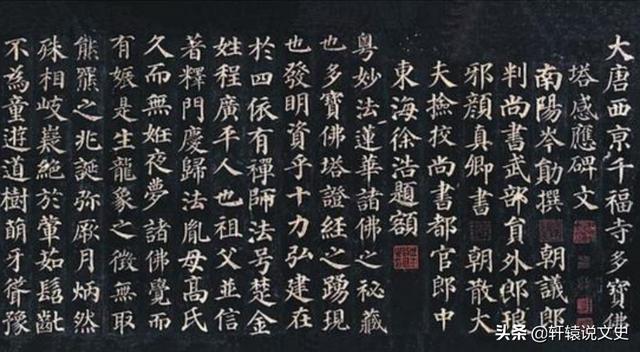 大唐西京千福寺多寶佛
塔感應碑文
南陽岑勛撰 朝議郎
判尚書武部員外郎琅
邪顏真卿書 朝散大
夫撿挍尚書都官郎中
東海徐浩題額
粵妙法蓮華諸佛之秘藏
也多寶佛塔證經之踴現
也發明資乎十力弘建在
於四依有禪師法号楚金
姓程廣平人也祖父並信
著釋門慶歸法胤母髙氏
久而無姙夜夢諸佛覺而
有娠是生龍象之徵無取
熊羆之兆誕弥厥月炳然
殊相岐嶷絕於葷茹髫齔
不為童遊道樹萌牙聳豫
头条 @轩辕说文史